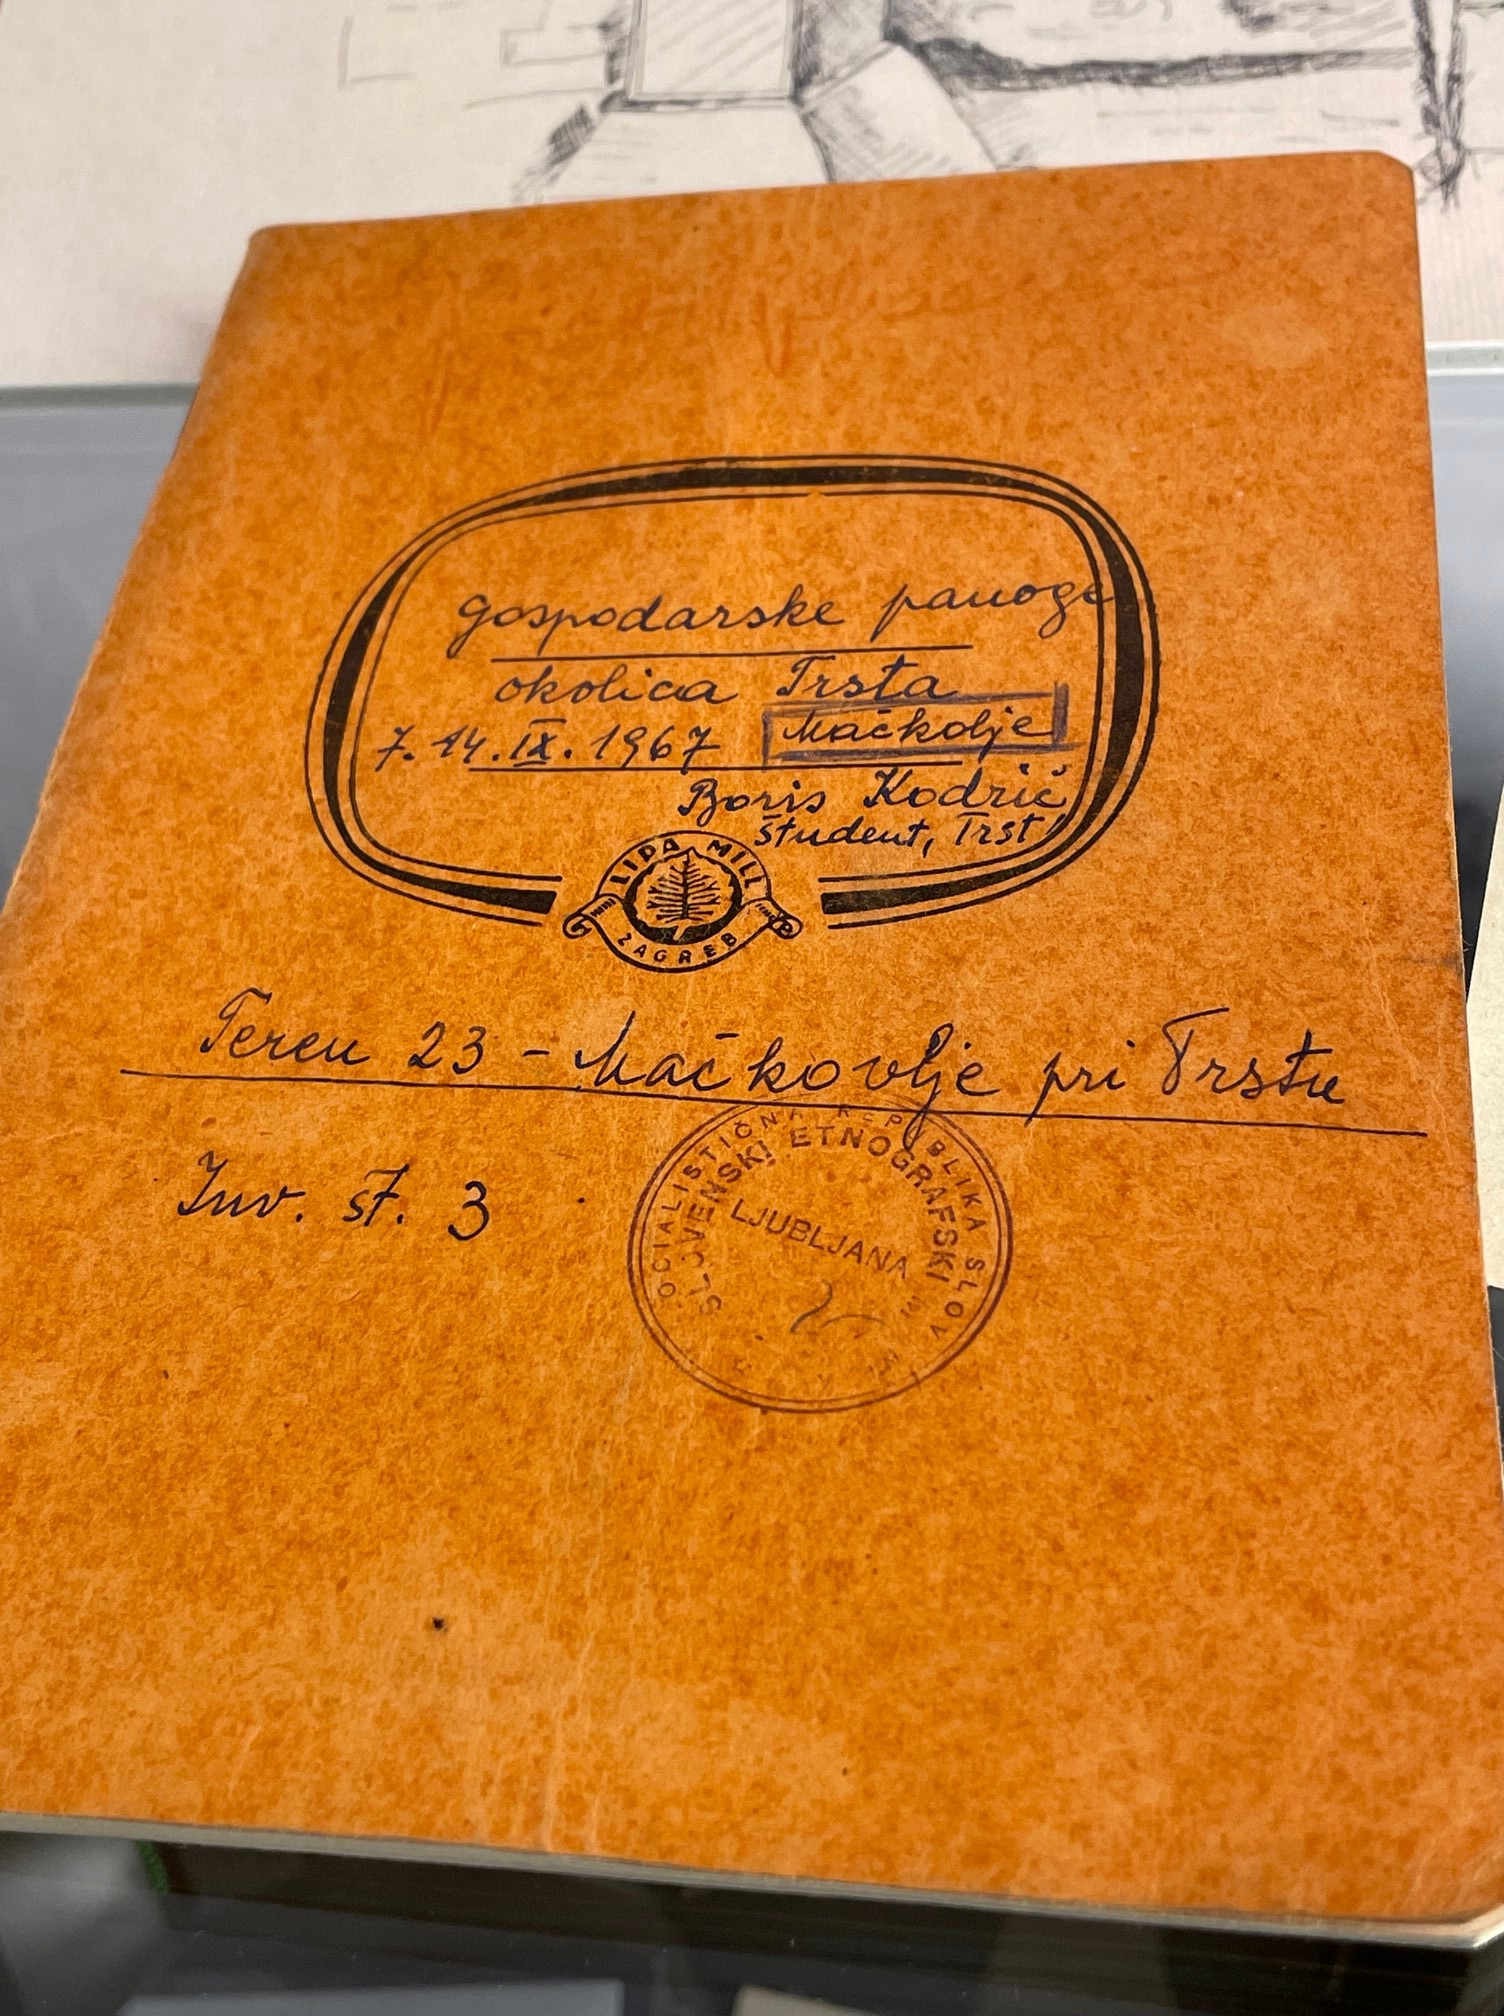 gospodarske panoge
okolica Trsta
7. 14. IX. 1967 Mačkolje
Boris Kodrič
študent, Trst
LIPA MILL
ZAGREB
Teren 23 - Mačkovlje pri Trstu
Inv. št. 3
SOCIALISTIČNA REPUBLIKA SLOV
SLOVENSKI ETNOGRAFSKI
LJUBLJANA